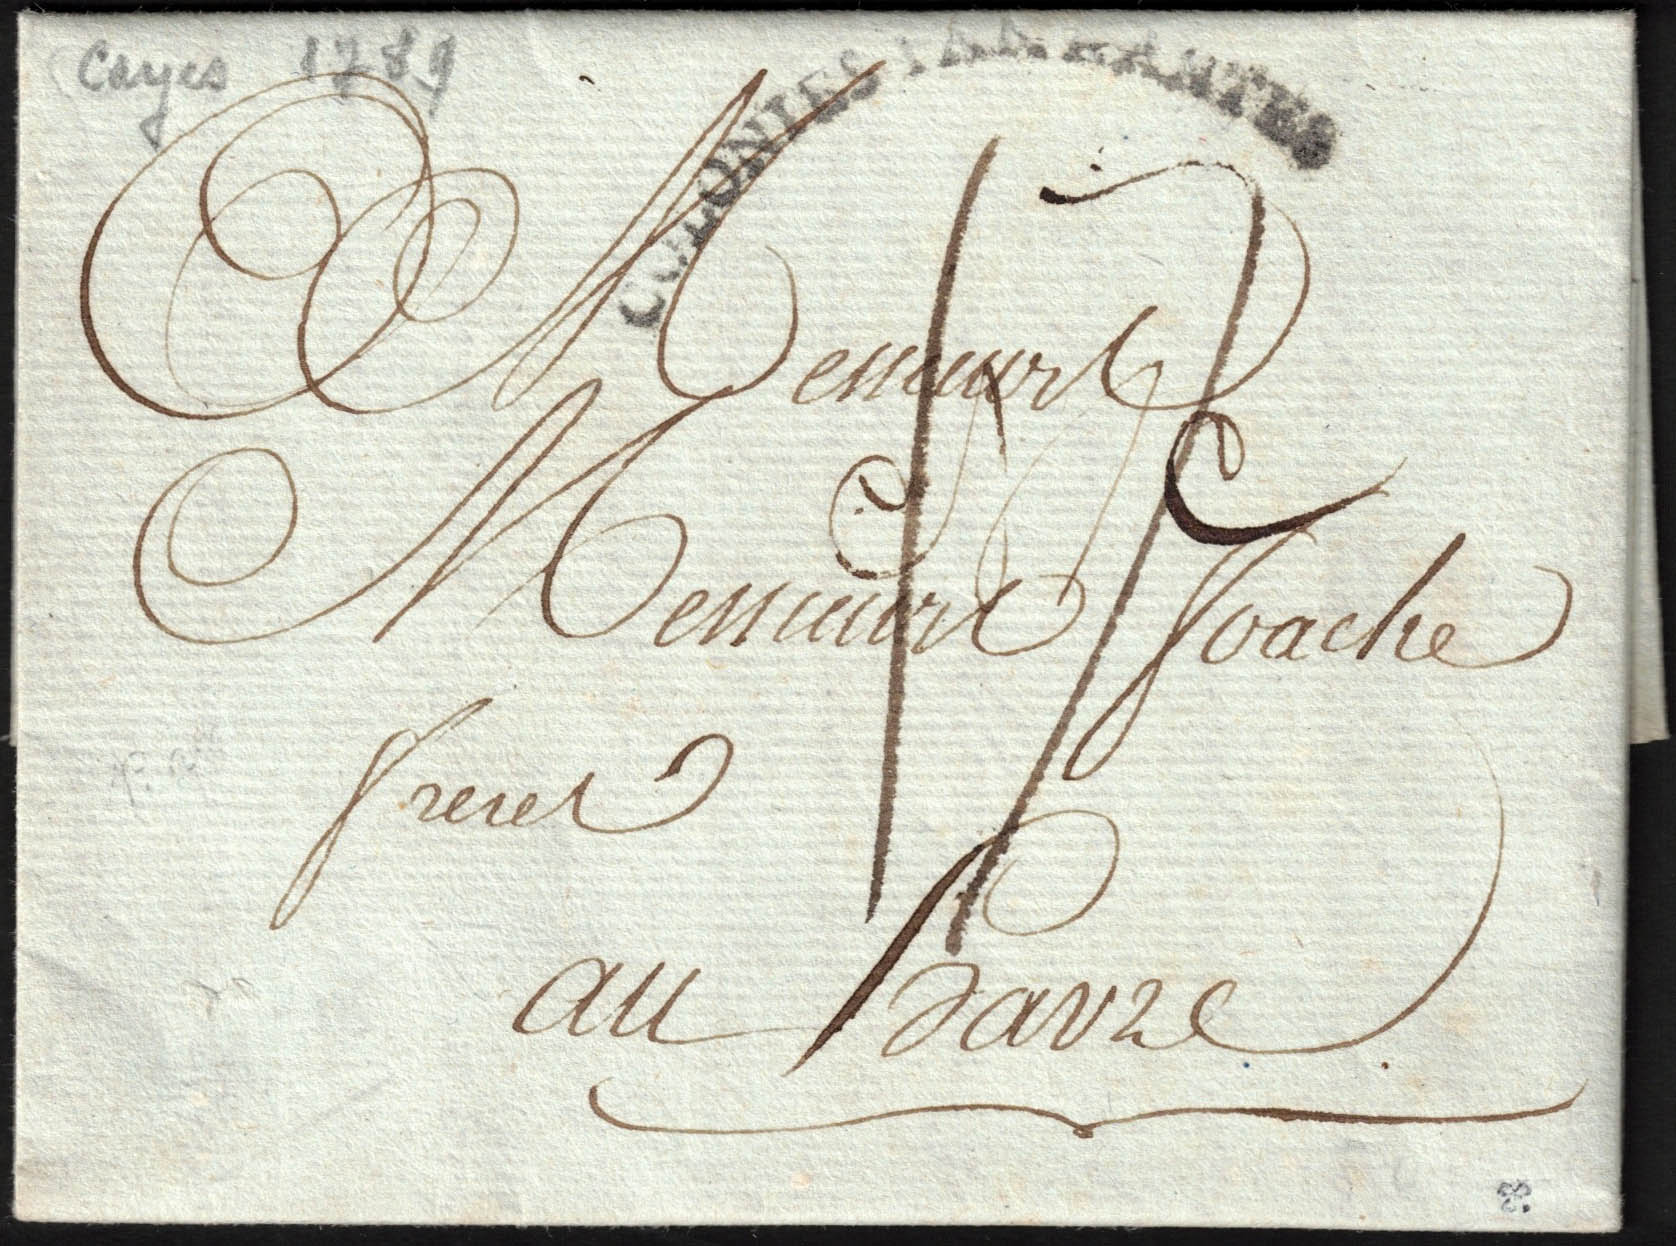 Cayes 1789
COLONIES PAR NANTES
17
Messieurs
Messieurs Foache
freres
au havre